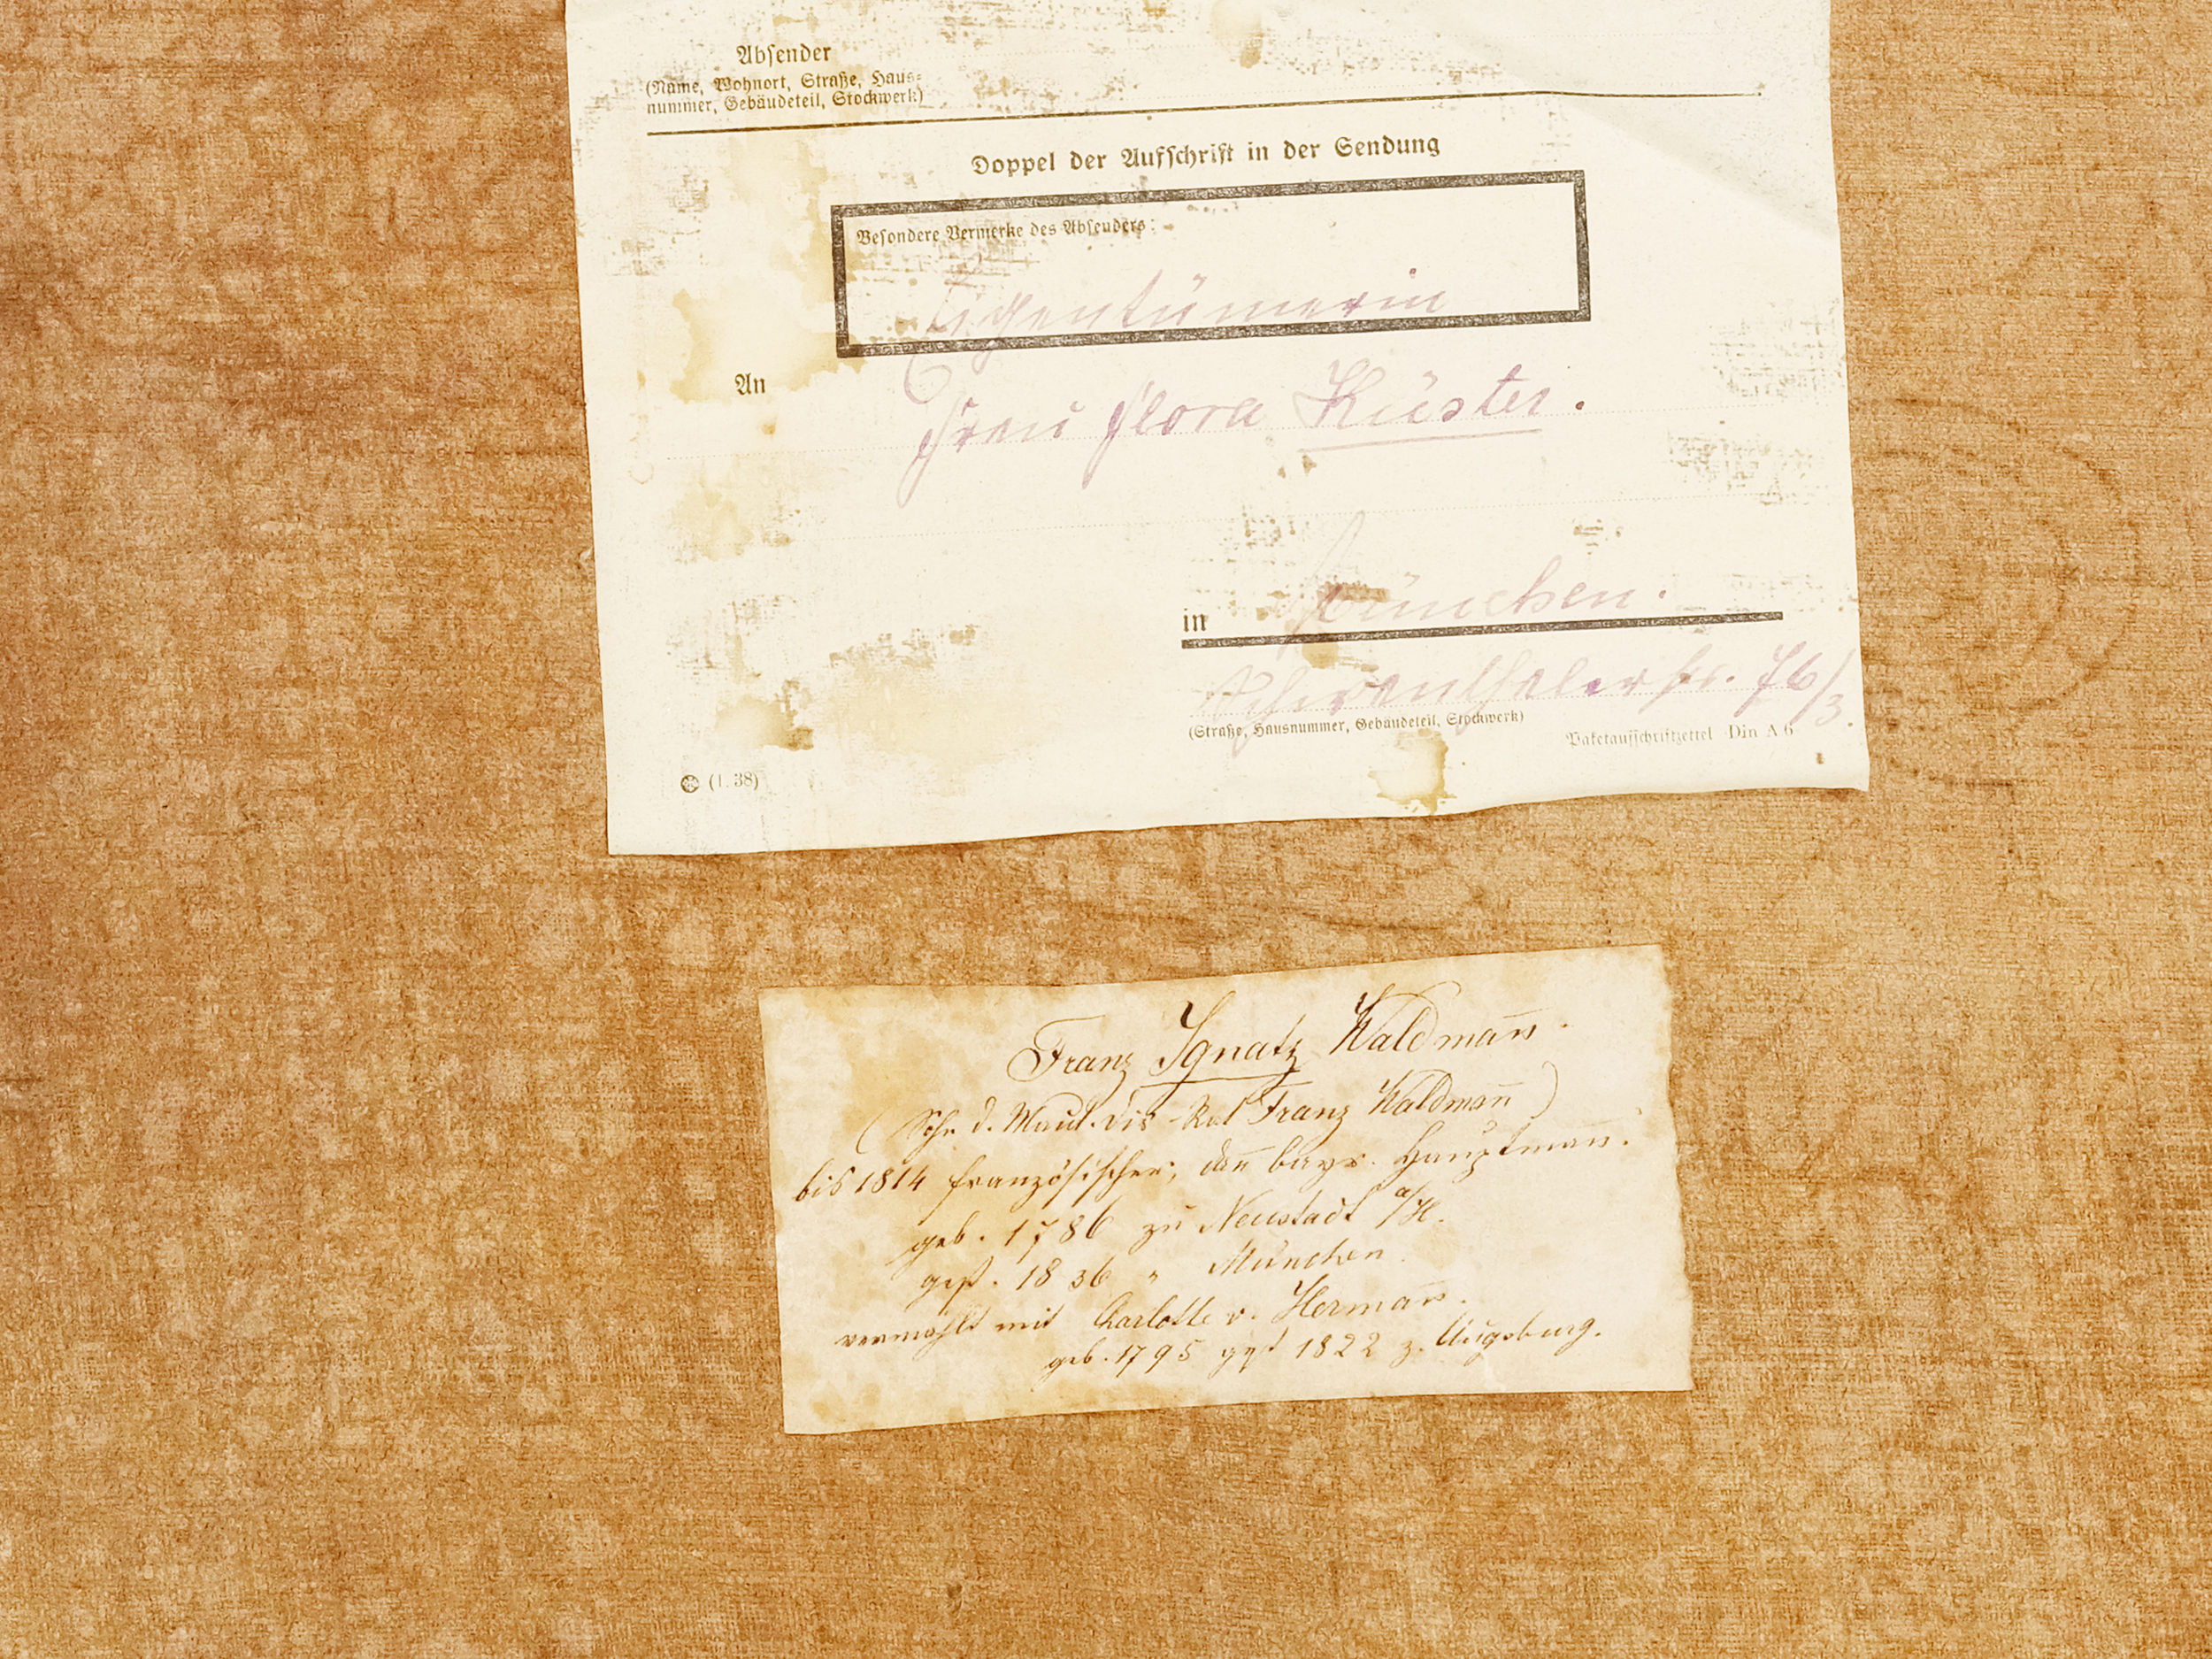 Absender
(Name, Wohnort, Straße, Haus-
nummer, Gebäudeteil, Stockwerk)
Doppel der Aufschrift in der Sendung
Besondere Vermerke des Absenders:
Eigentümerin
An
Frau Flora Küster.
in München.
Schwanthalerstr. 76/3.
(Straße, Hausnummer, Gebäudeteil, Stockwerk)
Paketaufschriftzettel Din A 6
(1. 38)
Franz Ignatz Waldman̅.
(Sohn d. Franz Waldman̅)
bis 1814 französischer, dan̅ bayr. Hauptman̅.
geb. 1786 zu Neustadt a/H.
gest. 1836 " München.
vermählt mit Charlotte v. Herman̅.
geb. 1795 gest 1822 z. Augsburg.